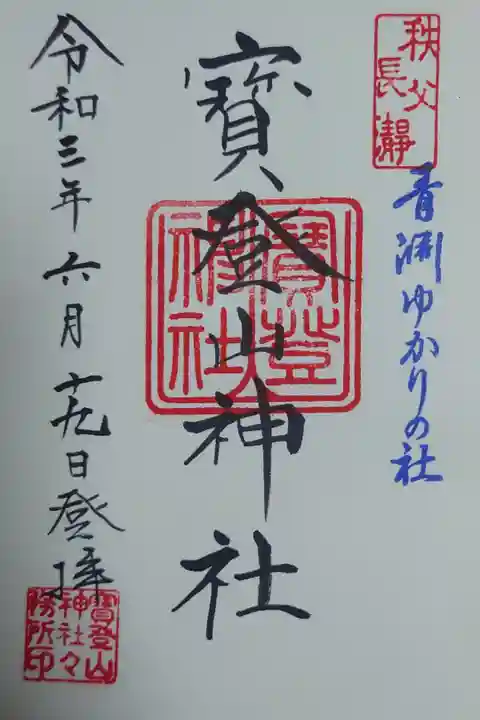 秩父
長瀞
青渊ゆかりの社
寳登山神社
寳登
神社
令和三年六月十九日登拝
寳登山
神社々
務所印